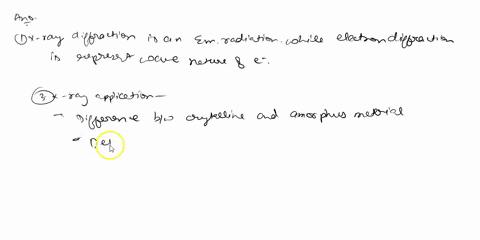 Ans.
① x-ray diffraction is an Em. radiation. while electron diffraction
is represent wave nature of e-.
③ x-ray application—
- Difference b/w crystelline and amorphus material
- De